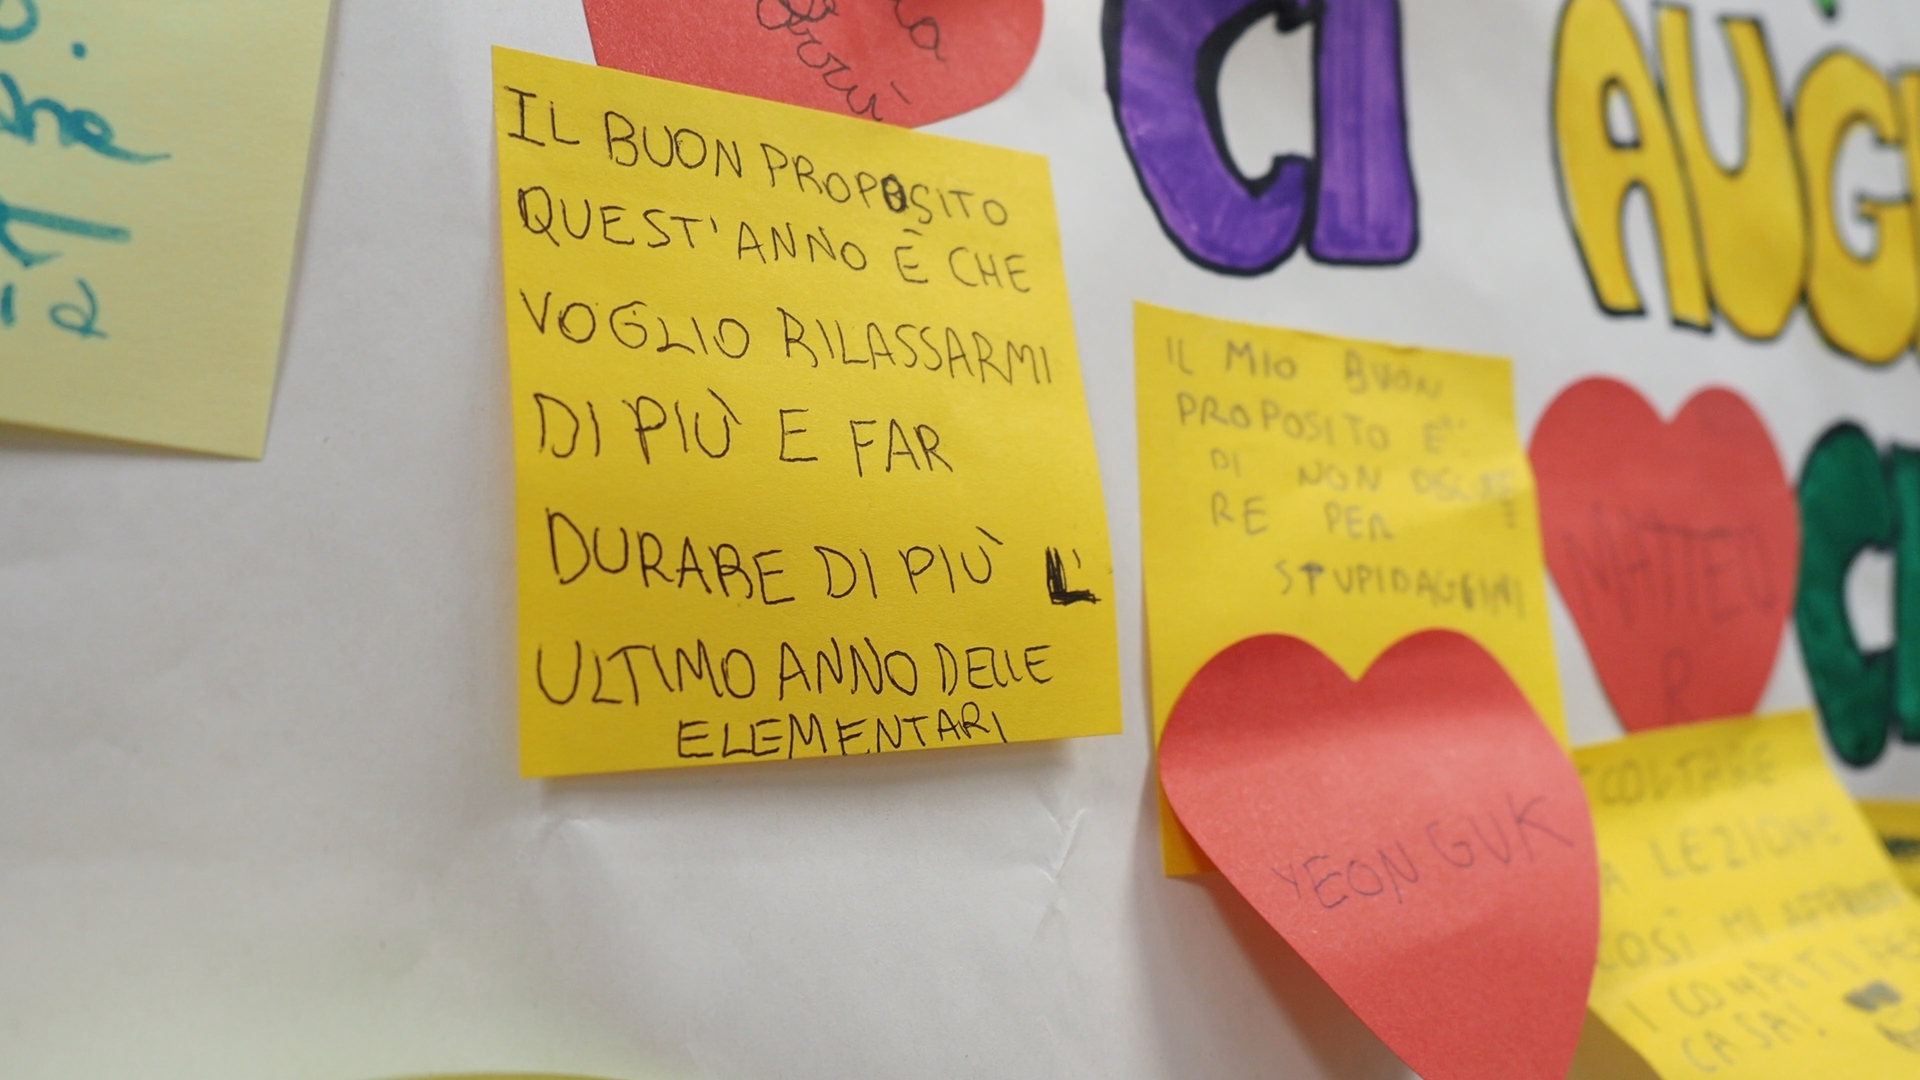 IL BUON PROPOSITO
QUEST'ANNO È CHE
VOGLIO RILASSARMI
DI PIÙ E FAR
DURARE DI PIÙ L'
ULTIMO ANNO DELLE
ELEMENTARI
CI
AUG
IL MIO BUON
PROPOSITO E'
DI NON
RE PER
STUPIDAGGINI
YEON GUK
MATTEO
R
LEZIONE
COSÌ MI
I COMPITI
CASA!